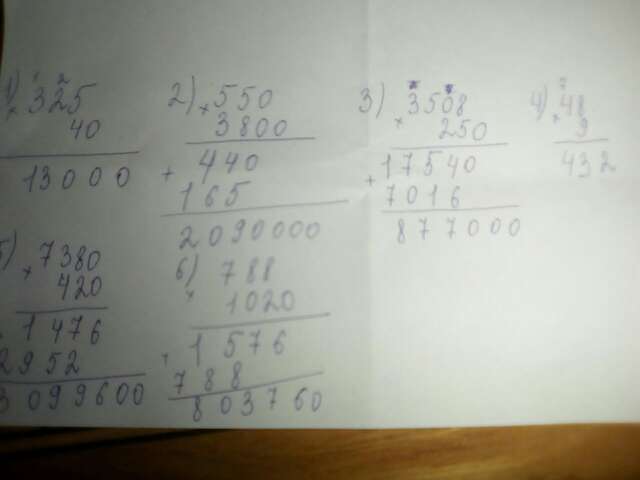 1) 325
× 40
13000
2) 550
× 3800
+ 440
165
2090000
3) 3508
× 250
+ 17540
7016
877000
4) 48
× 9
432
5) 7380
× 420
1476
2952
3099600
6) 788
× 1020
+ 1576
788
803760